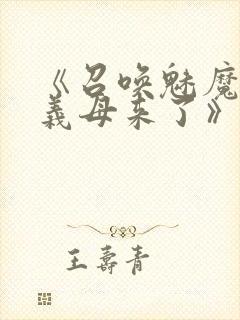 《召唤魅魔
義母来了》
王壽青